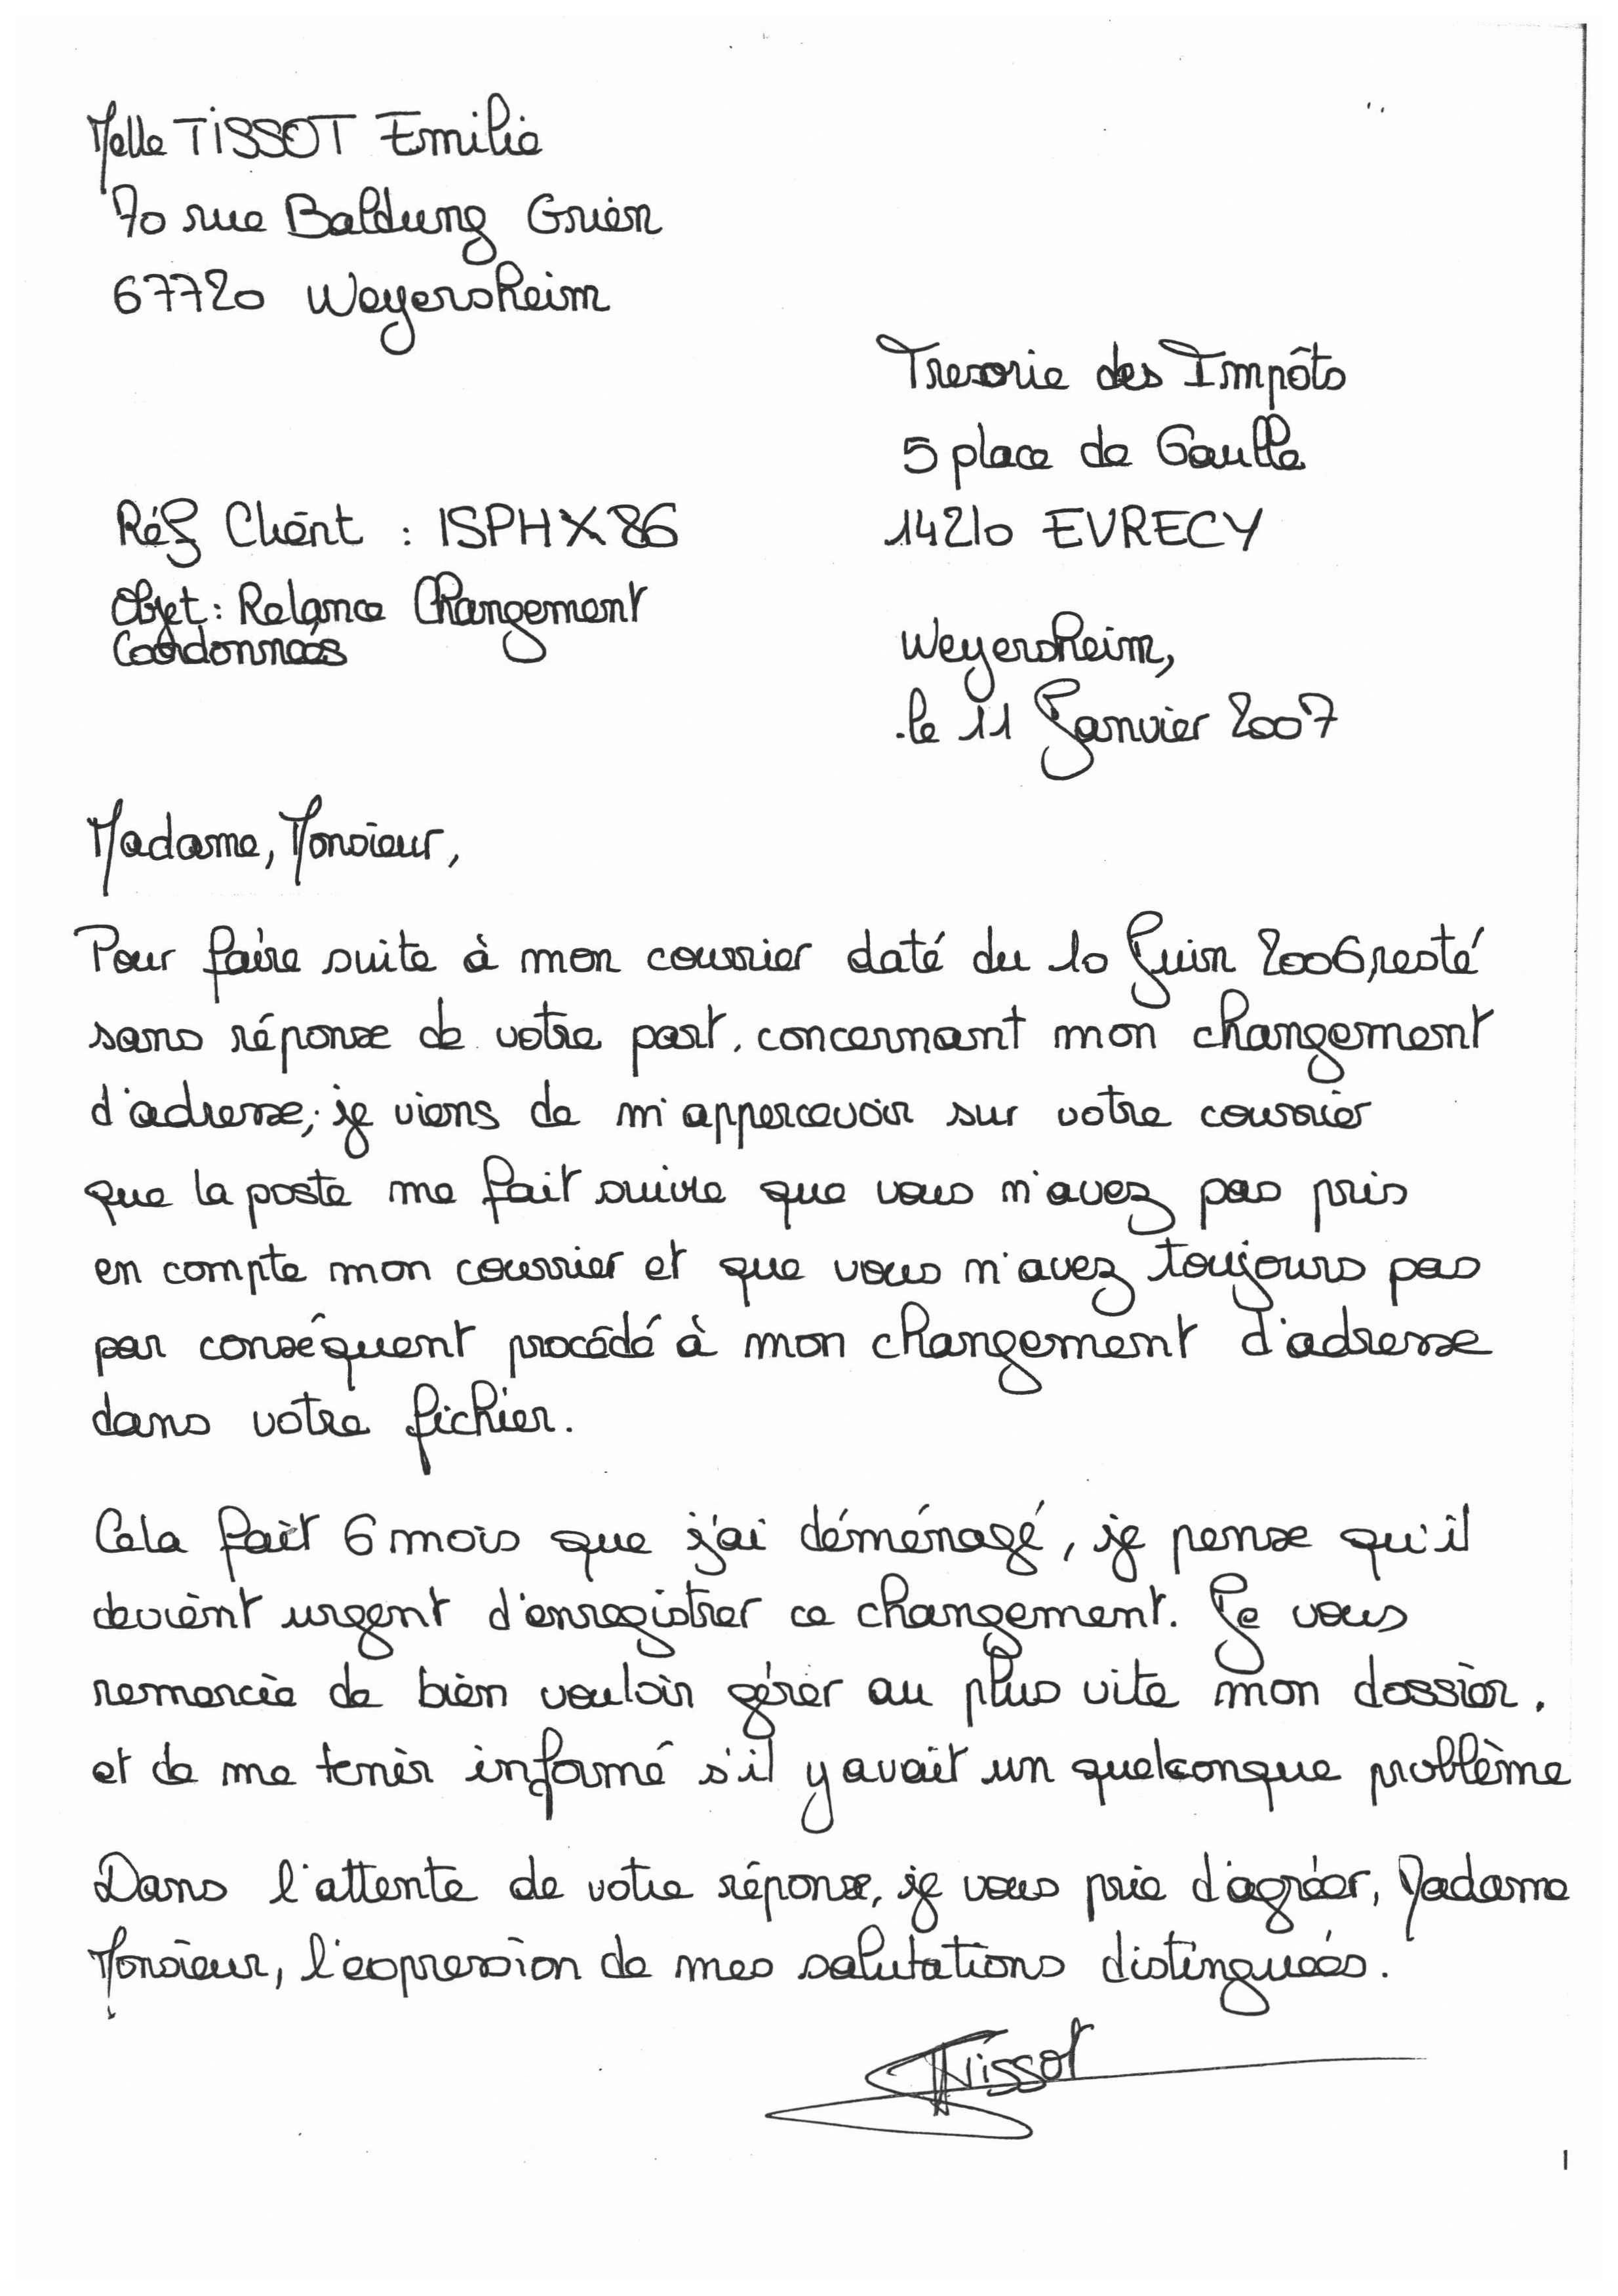 Melle TISSOT Emilie
70 rue Baldung Grien
67720 Weyersheim
Tresorie des Impôts
5 place de Gaulle
14210 EVRECY
Réf Client : ISPHX86
Objet : Relance Changement
Coordonnées
Weyersheim,
le 11 Janvier 2007
Madame, Monsieur,
Pour faire suite à mon courrier daté du 10 Juin 2006, resté
sans réponse de votre part, concernant mon changement
d'adresse, je viens de m'appercevoir sur votre courrier
que la poste me fait suivre que vous n'avez pas pris
en compte mon courrier et que vous n'avez toujours pas
par conséquent procédé à mon changement d'adresse
dans votre fichier.
Cela fait 6 mois que j'ai déménagé, je pense qu'il
devient urgent d'enregistrer ce changement. Je vous
remercie de bien vouloir gérer au plus vite mon dossier,
et de me tenir informé s'il y avait un quelconque problème
Dans l'attente de votre réponse, je vous prie d'agréer, Madame
Monsieur, l'expression de mes salutations distinguées.
Tissot
1